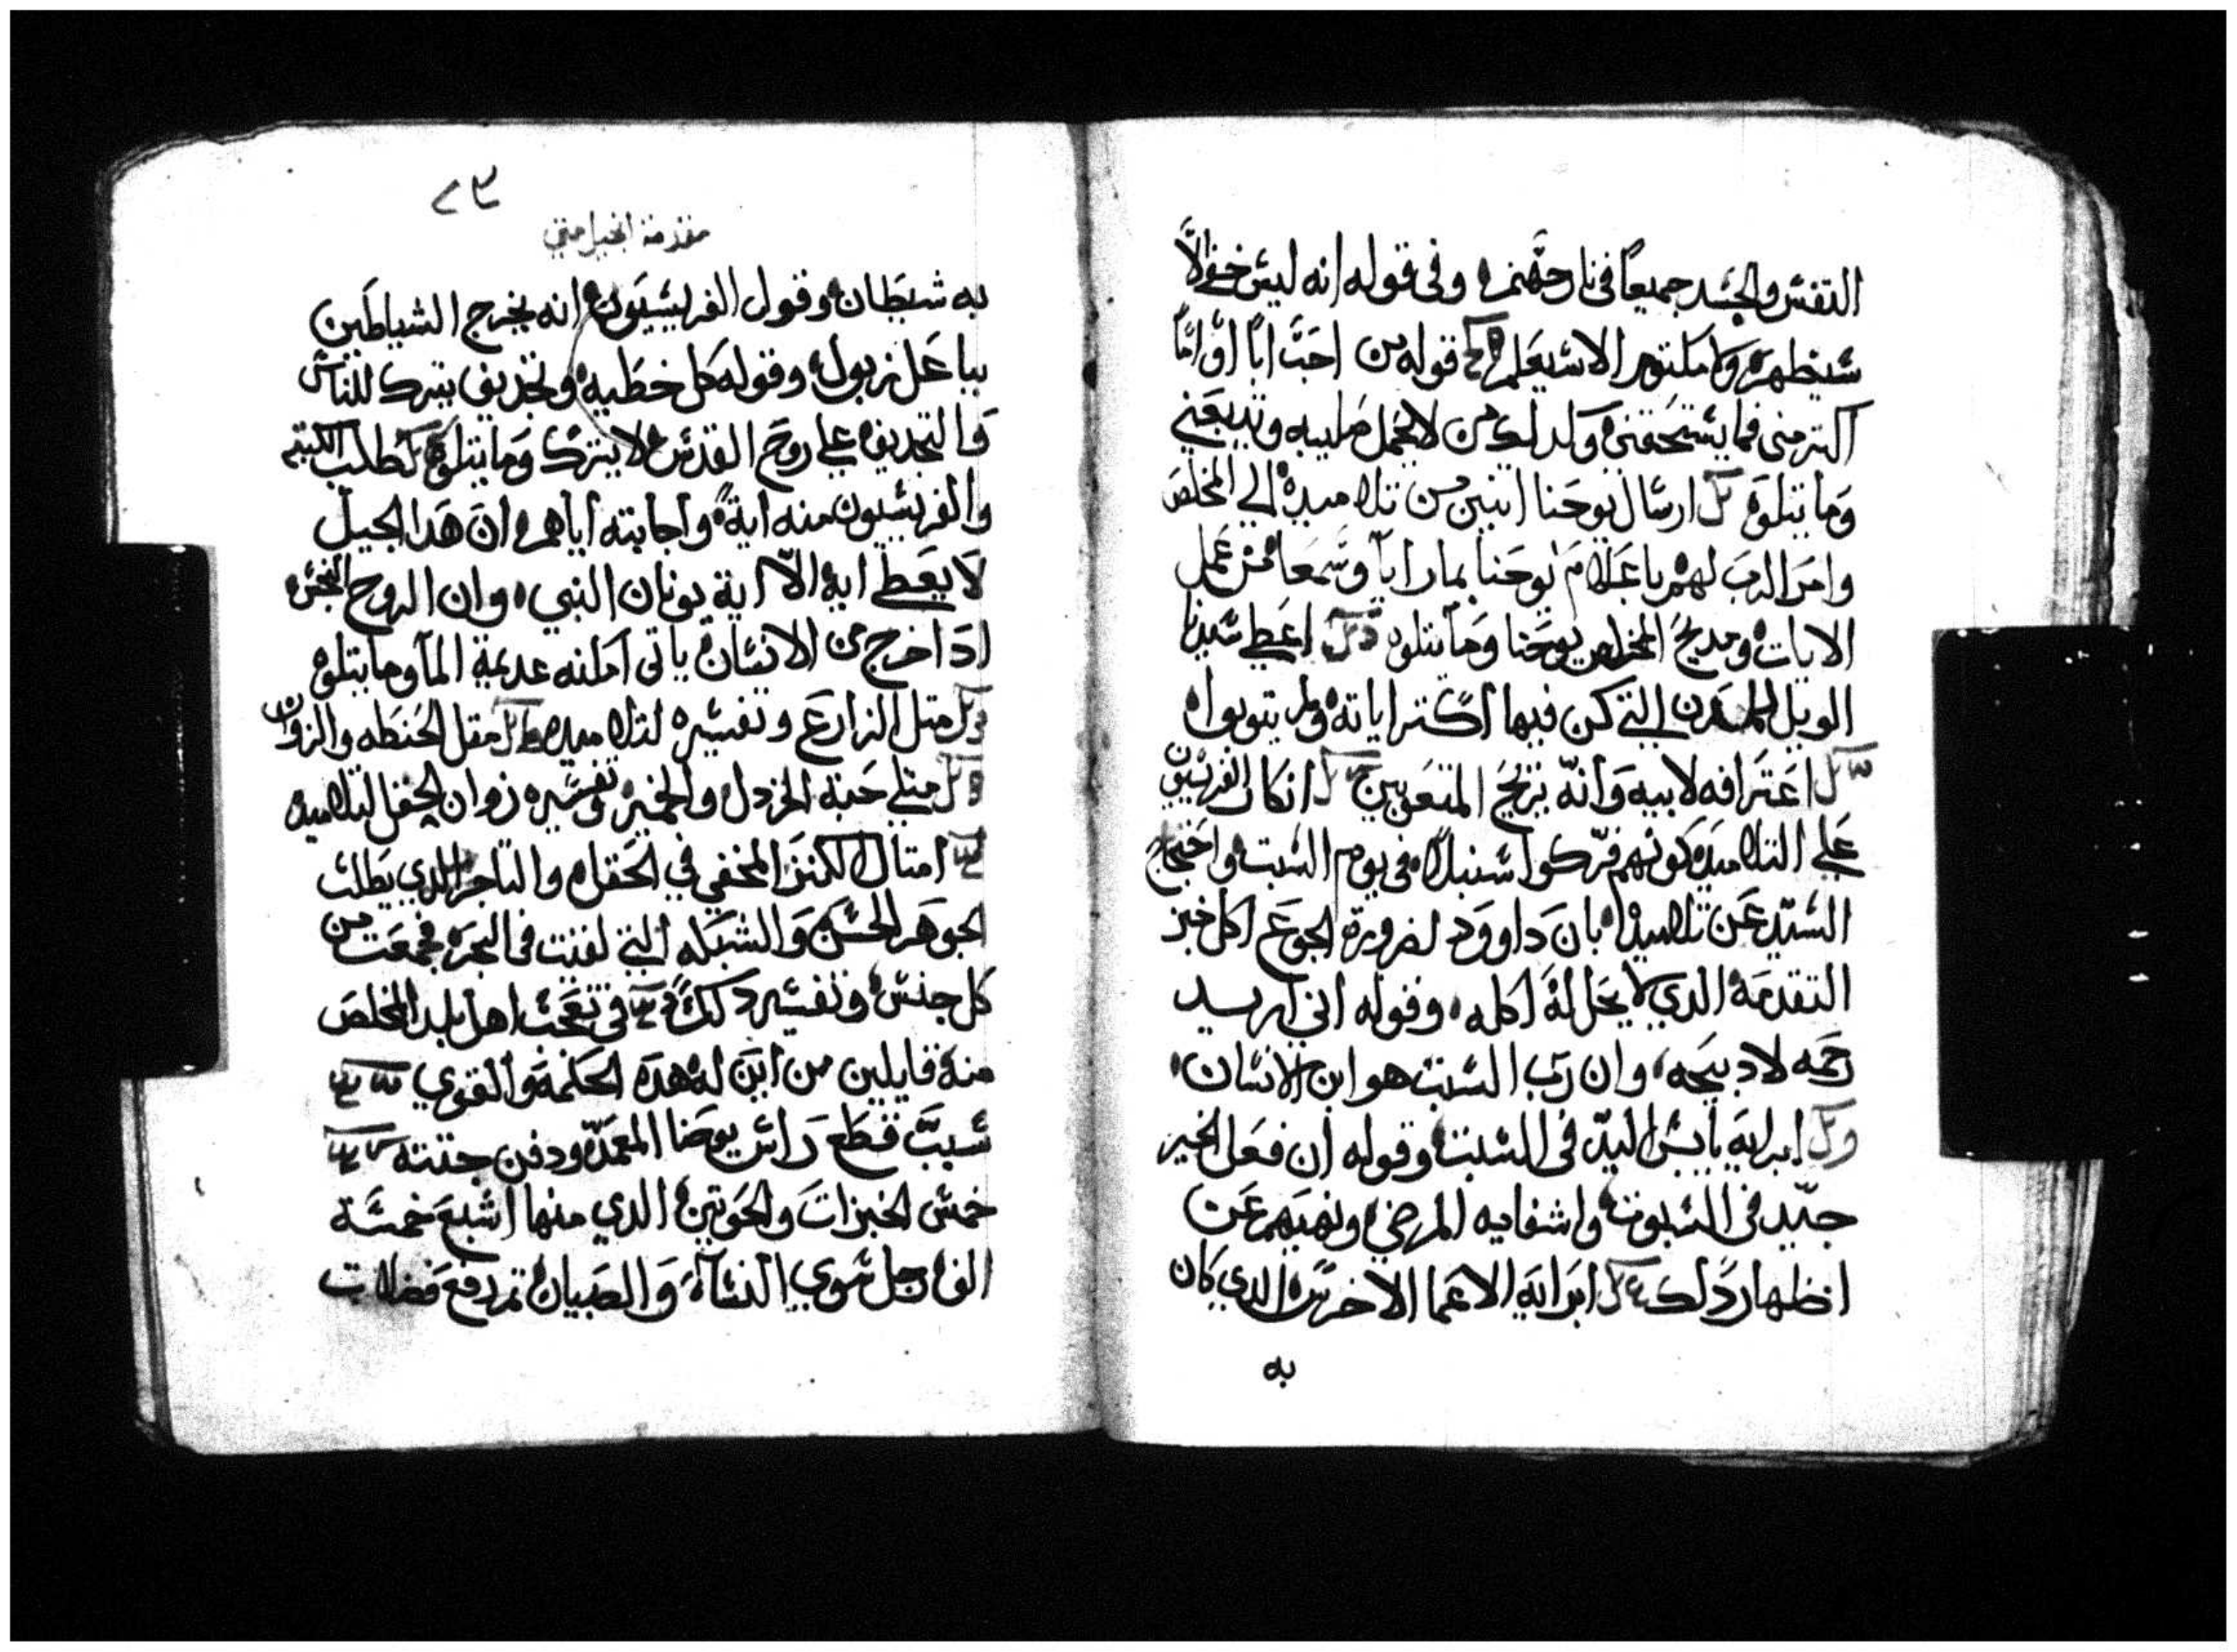 النفس والجسد جميعًا في نار جهنم وفي قوله انه ليس خفي الّا
سيظهر ولا مكتوم الا سيعلم قوله من احبّ ابًا او امًّا
اكتر مني فما يستحقني وكدلك من لا يحمل صليبه ويتبعني
وما يتلوه ارسال يوحنا اتنين من تلاميده الي المخلص
وامر الرب لهم باعلام يوحنا بما رايا وسمعا من عمل
الايات ومديح المخلص يوحنا وما يتلوه اعطي سيدنا
الويل للمدن التي كن فيها اكتر اياته ولم يتوبوا
اعترافه لابيه وانه يريح المتعوبين انكار الفريسين
علي التلاميد كونهم فرّكوا سنبلاً في يوم السبت واحتجاج
السيّد عن تلاميده بان داوود لضرورة الجوع اكل خبز
التقدمة الدي لا يحل له اكله وقوله اني اريد
رحمه لا دبيحه وان رب السبت هو ابن الانسان
ابرايه يابس اليد في السبت وقوله ان فعل الخير
جيّد في السبوت واشفايه المرضي ونهيهم عن
اظهار دلك ابرايه الاعما الاخرس الدي كان
به
٢٣
مقدمة انجيل متي
به شيطان وقول الفريسيون انه يخرج الشياطين
بباعل زبول وقوله كل خطيه وتجديف يترك للناس
والتجديف علي روح القدس لا يترك وما يتلوه طلب الكتبه
والفريسيون منه اية واجابته اياهم ان هدا الجيل
لا يعطي اية الّا اية يونان النبي وان الروح النجس
ادا خرج من الانسان ياتي امكنه عديمة المآ وما يتلوه
متل الزارع وتفسيره لتلاميده متل الحنطه والزوان
متلي حبة الخردل والخمير وتفسيره زوان الحقل لتلاميده
امتال الكنز المخفي في الحقل والتاجر الدي يطلب
الجوهر الحسن والشبكه التي لقيت في البحر فجمعت من
كل جنس وتفسير دلك في تعجب اهل بلد المخلص
منه قايلين من اين له هده الحكمة والقوي
سبب قطع راس يوحنا المعمد ودفن جتته
خمس الخبزات والحوتين الدي منها اشبع خمسة
الف رجل سوي النسآء والصبيان تم رفع فضلات